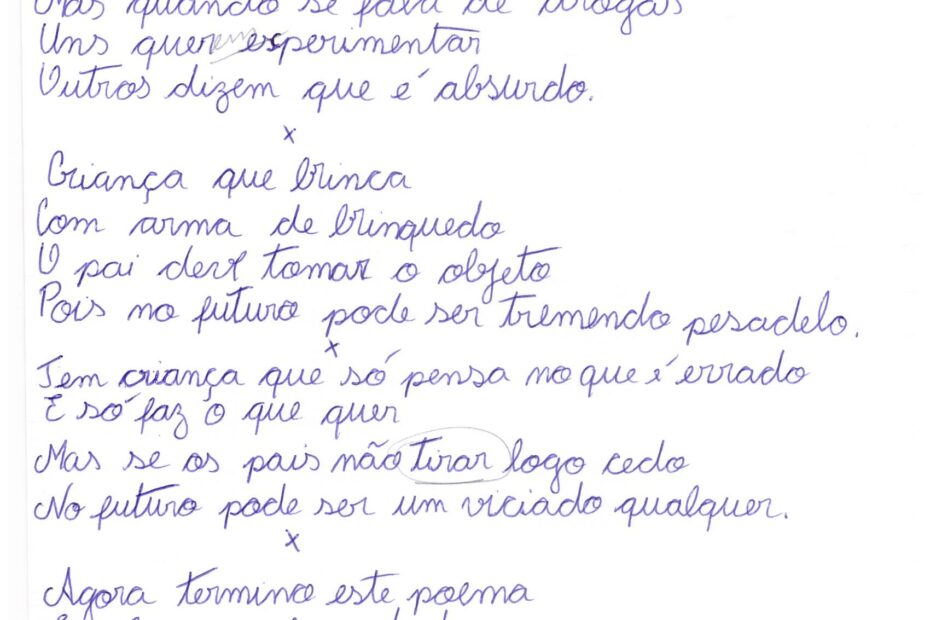 Mas quando se fala de drogas
Uns querem experimentar
Outros dizem que é absurdo.
x
Criança que brinca
Com arma de brinquedo
O pai deve tomar o objeto
Pois no futuro pode ser tremendo pesadelo.
x
Tem criança que só pensa no que é errado
E só faz o que quer
Mas se os pais não tirar logo cedo
No futuro pode ser um viciado qualquer.
x
Agora termino este poema